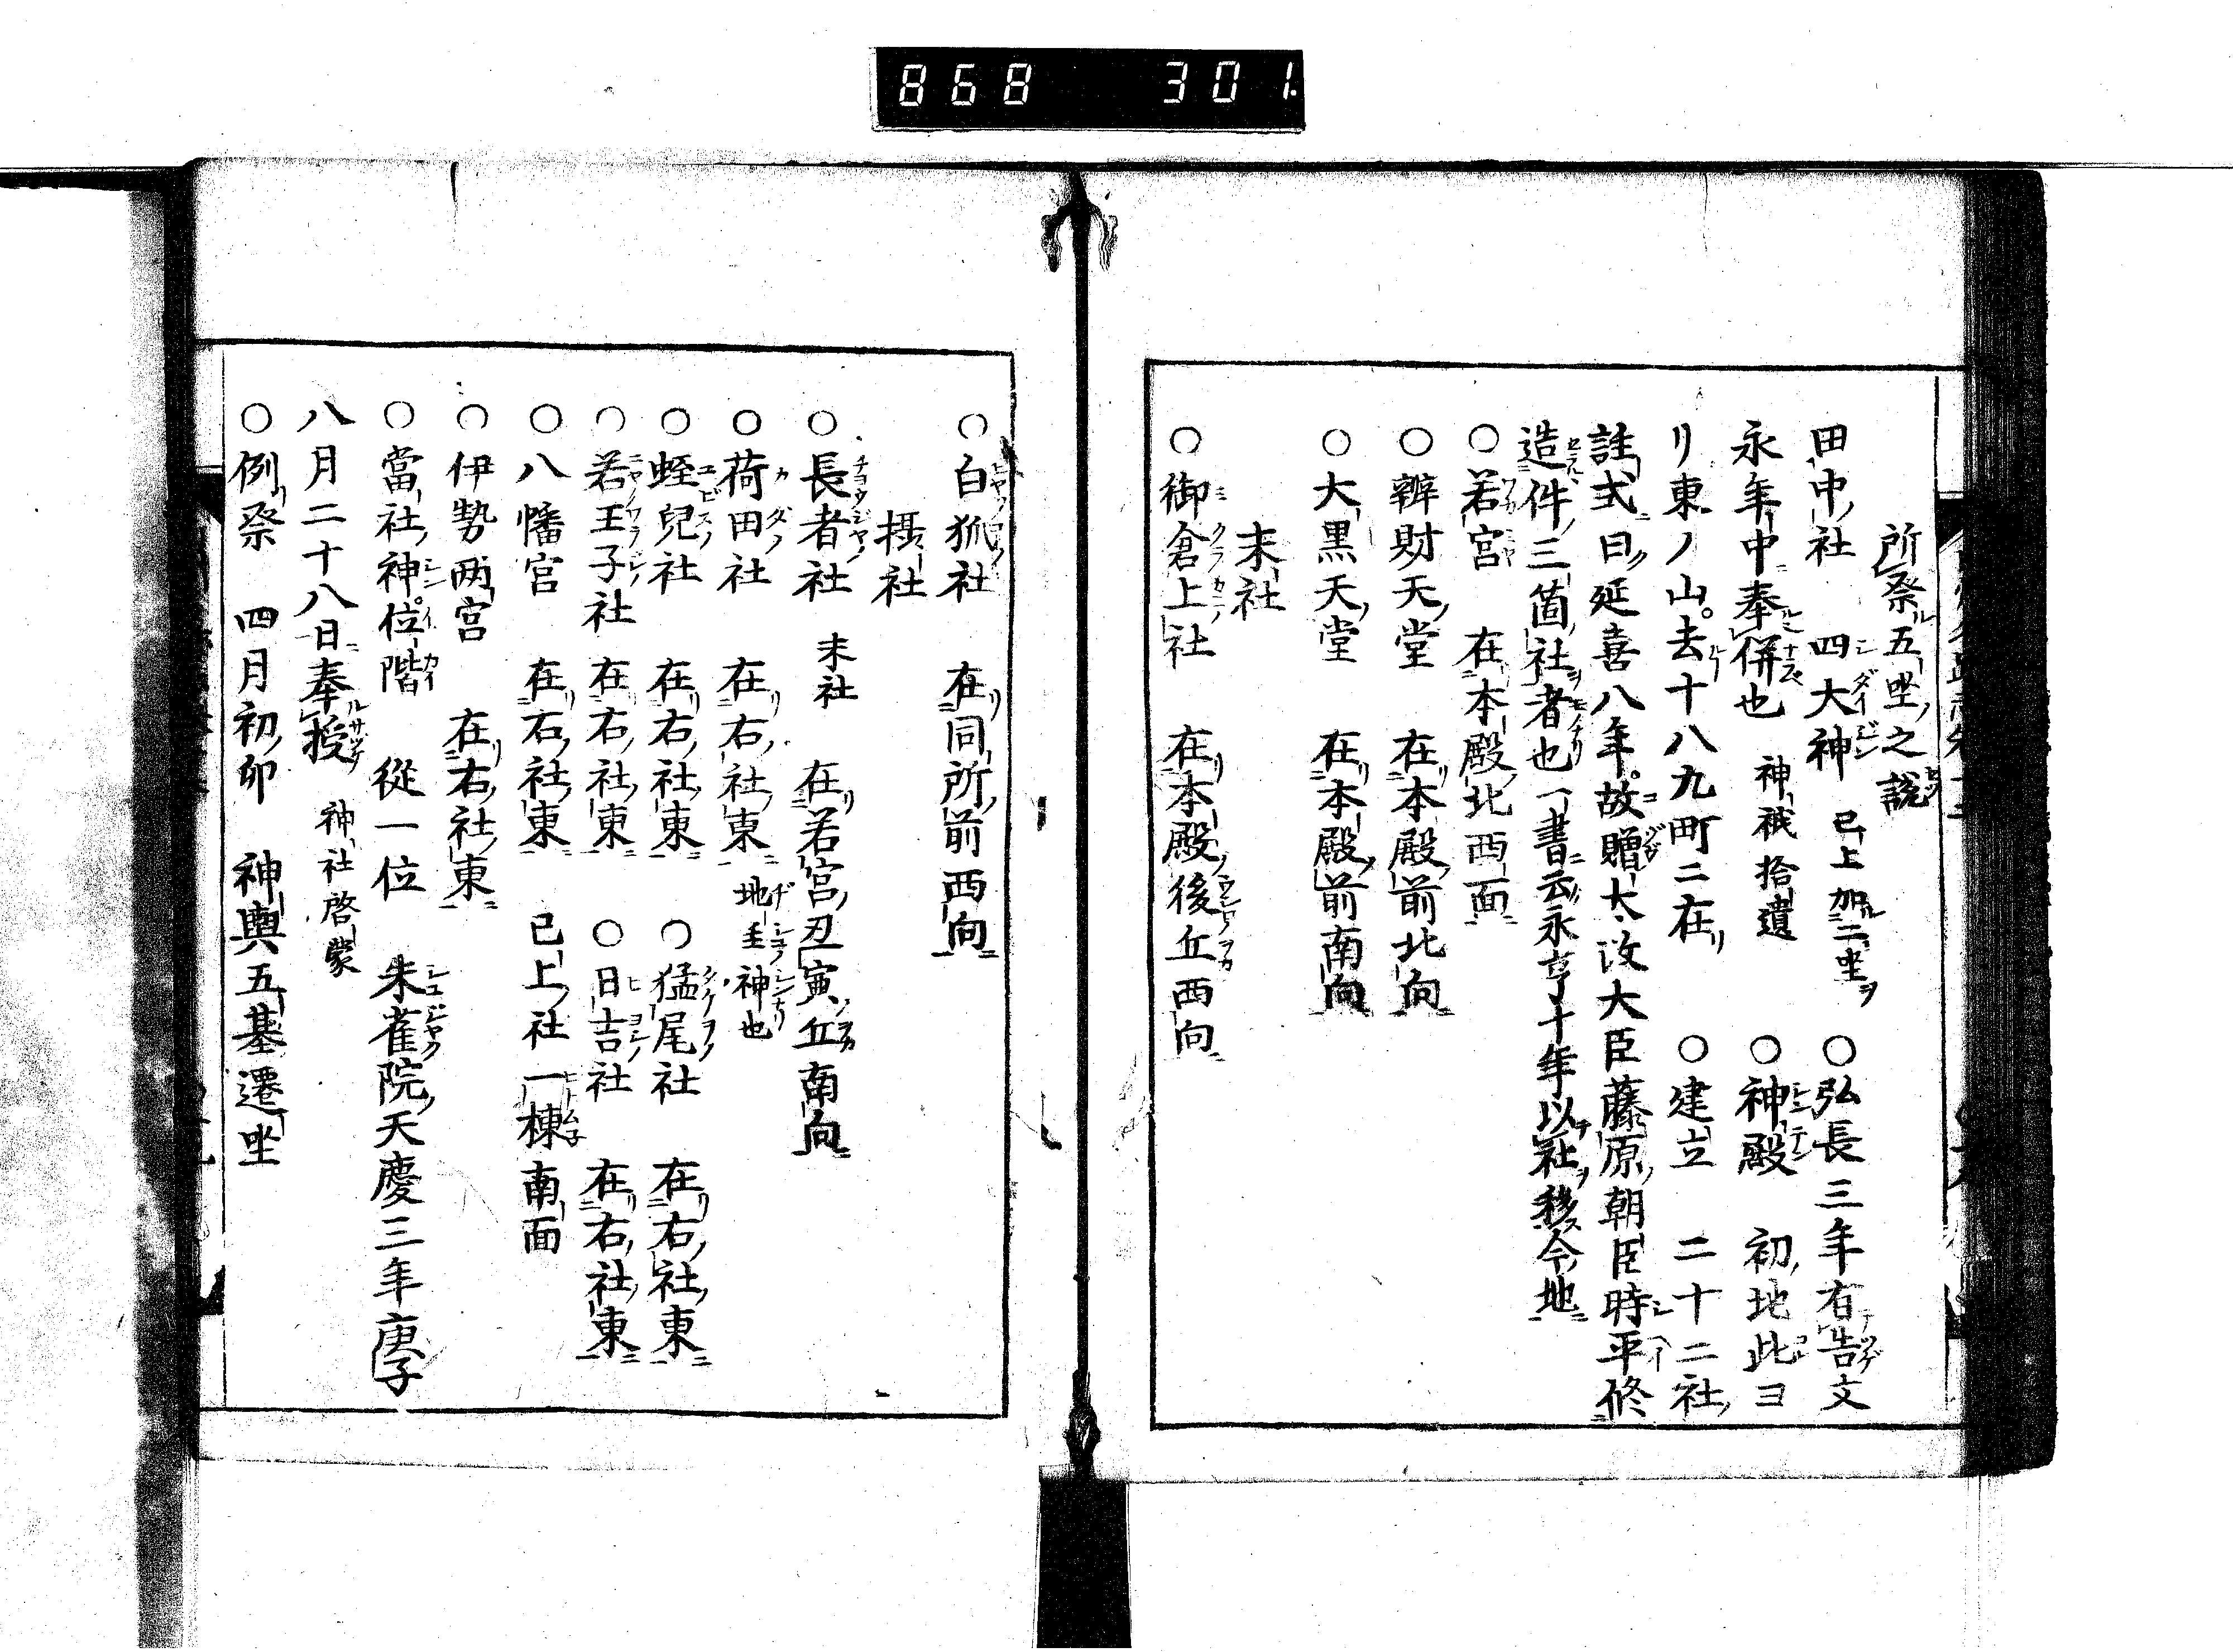 868 301
所祭五坐之説
田中社 四大神 已上加二坐ヲ ○弘長三年有告文
永年中奉併也 神祇拾遺 ○神殿 初地此ヨ
リ東ノ山。去十八九町ニ在リ ○建立 二十二社
註式曰延喜八年。故贈太政大臣藤原朝臣時平修
造件三箇社者也一書云永享十年以社移今地
○若宮 在本殿北西面
○辨財天堂 在本殿前北向
○大黒天堂 在本殿前南向
末社
○御倉上社 在本殿後丘西向
○白狐社 在同所前西向
摂社
○長者社 末社 在若宮丑寅丘南向
○荷田社 在右社東 地主神也
○蛭兒社 在右社東 ○猛尾社 在右社東
○若王子社 在右社東 ○日吉社 在右社東
○八幡宮 在右社東 已上社一棟南面
○伊勢両宮 在右社東
○當社神位階 從一位 朱雀院天慶三年庚子
八月二十八日奉授 神社啓蒙
○例祭 四月初卯 神輿五基遷坐